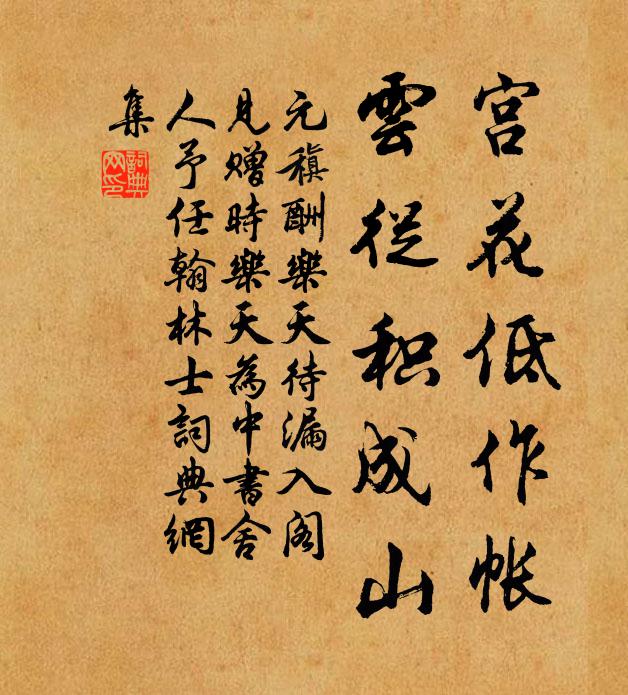 宫花低作帐
雲從积成山
元稹酬樂天待漏入阁
見赠時樂天為中書舍
人予任翰林士詞典網
集
詞典
网印